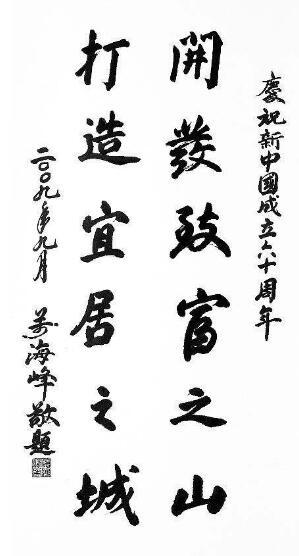 慶祝新中國成立六十周年
開發致富之山
打造宜居之城
二〇〇九年九月 萬海峰敬題